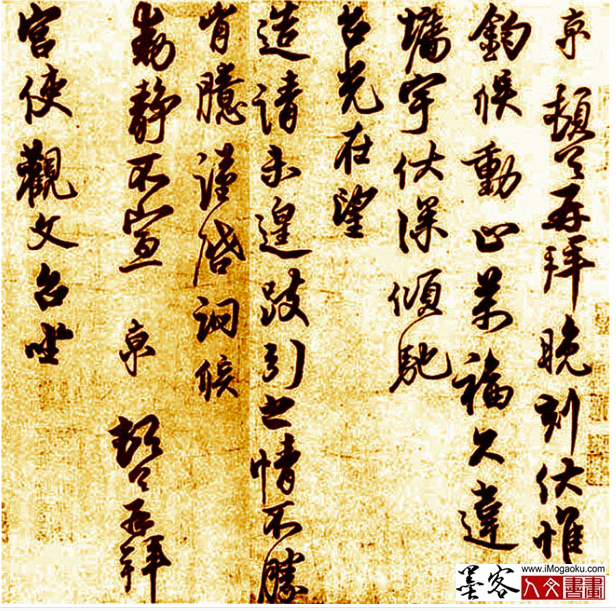 京 頓首再拜晚刻伏惟
鈞候動止萬福久違
墻宇伏深傾馳
台光在望
造請未遑跂引之情不勝
胷臆謹啓詗候
動靜不宣 京 頓首再拜
宮使觀文台坐
墨客
www.iMogaoku.com
人文書畫